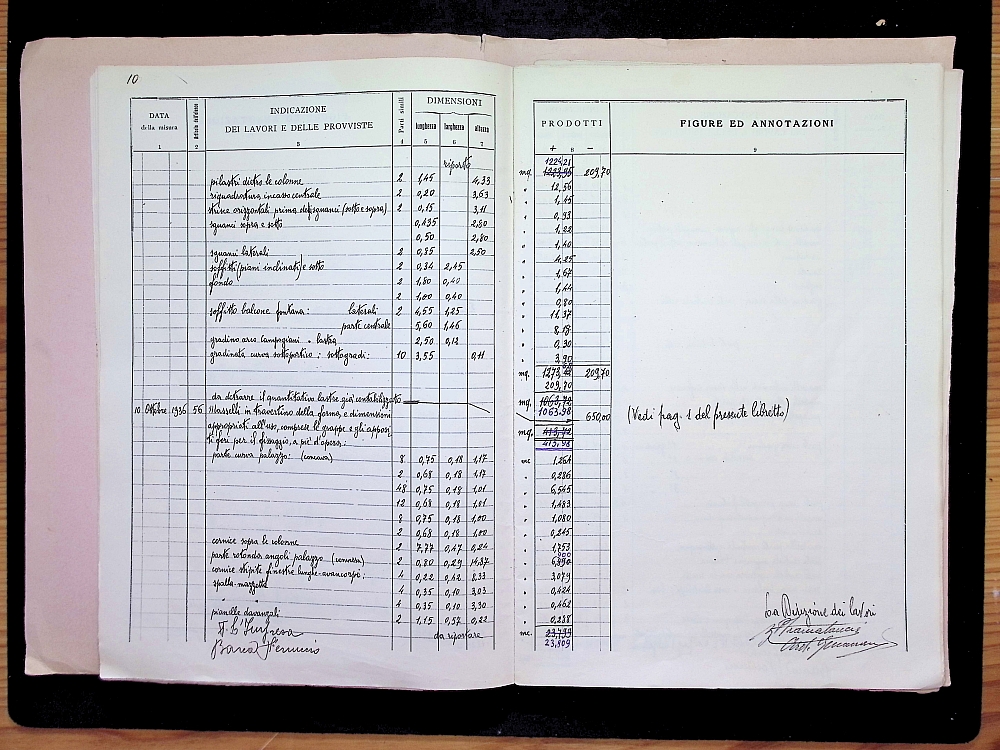 10
DATA della misura
Articolo dell'elenco
INDICAZIONE DEI LAVORI E DELLE PROVVISTE
Parti simili
DIMENSIONI
lunghezza larghezza altezza
PRODOTTI
+ 8 -
FIGURE ED ANNOTAZIONI
1 2 3 4 5 6 7 9
riporto mq. 1229,21 209,70
pilastri dietro le colonne 2 1,45 4,33 12,56
riquadratura incasso centrale 2 0,20 3,63 1,45
strisce orizzontali prima degli sguanci (sotto e sopra) 2 0,15 3,11 0,93
sguanci sopra e sotto 0,435 2,80 1,22
0,50 2,80 1,40
sguanci laterali 2 0,85 2,50 4,25
soffitti (piani inclinati) e sotto 2 0,34 2,45 1,67
fondo 2 1,80 0,40 1,44
2 1,00 0,40 0,80
soffitto balcone fontana: laterali 2 4,55 1,25 11,37
parte centrale 5,60 1,46 8,18
gradino arco Campogiani - lastra 2,50 0,12 0,30
gradinata curva sottoportico: sottogradi: 10 3,55 0,11 3,90
mq. 209,70
209,70
da detrarre il quantitativo lastre già contabilizzato
mq. 1063,72
10 Ottobre 1936 56 Masselli in travertino della forma, e dimensioni 1063,98 650,00 (Vedi pag. 1 del presente libretto)
appropriati all'uso, comprese le grappe e gli apposi mq. 413,72
ti fori per il fissaggio, a piè d'opera: 413,98
parte curva palazzo: (concava) 8 0,75 0,18 1,17 mc 1,264
2 0,68 0,18 1,17 0,286
48 0,75 0,18 1,01 6,545
12 0,68 0,18 1,01 1,483
8 0,75 0,18 1,00 1,080
2 0,68 0,18 1,00 0,245
cornice sopra le colonne 2 7,77 0,47 0,24 1,753
parte rotonda angoli palazzo (convessa) 2 0,80 0,29 14,87
cornice stipite finestre lunghe-avancorpo: 4 0,22 0,42 8,33 3,079
spalla-mazzetta 4 0,35 0,10 3,03 0,424
" " 4 0,35 0,10 3,30 0,462
pianelle davanzali 2 1,15 0,57 0,22 0,238
da riportare mc. 23,799
23,809
p. L'Impresa
La Direzione dei lavori